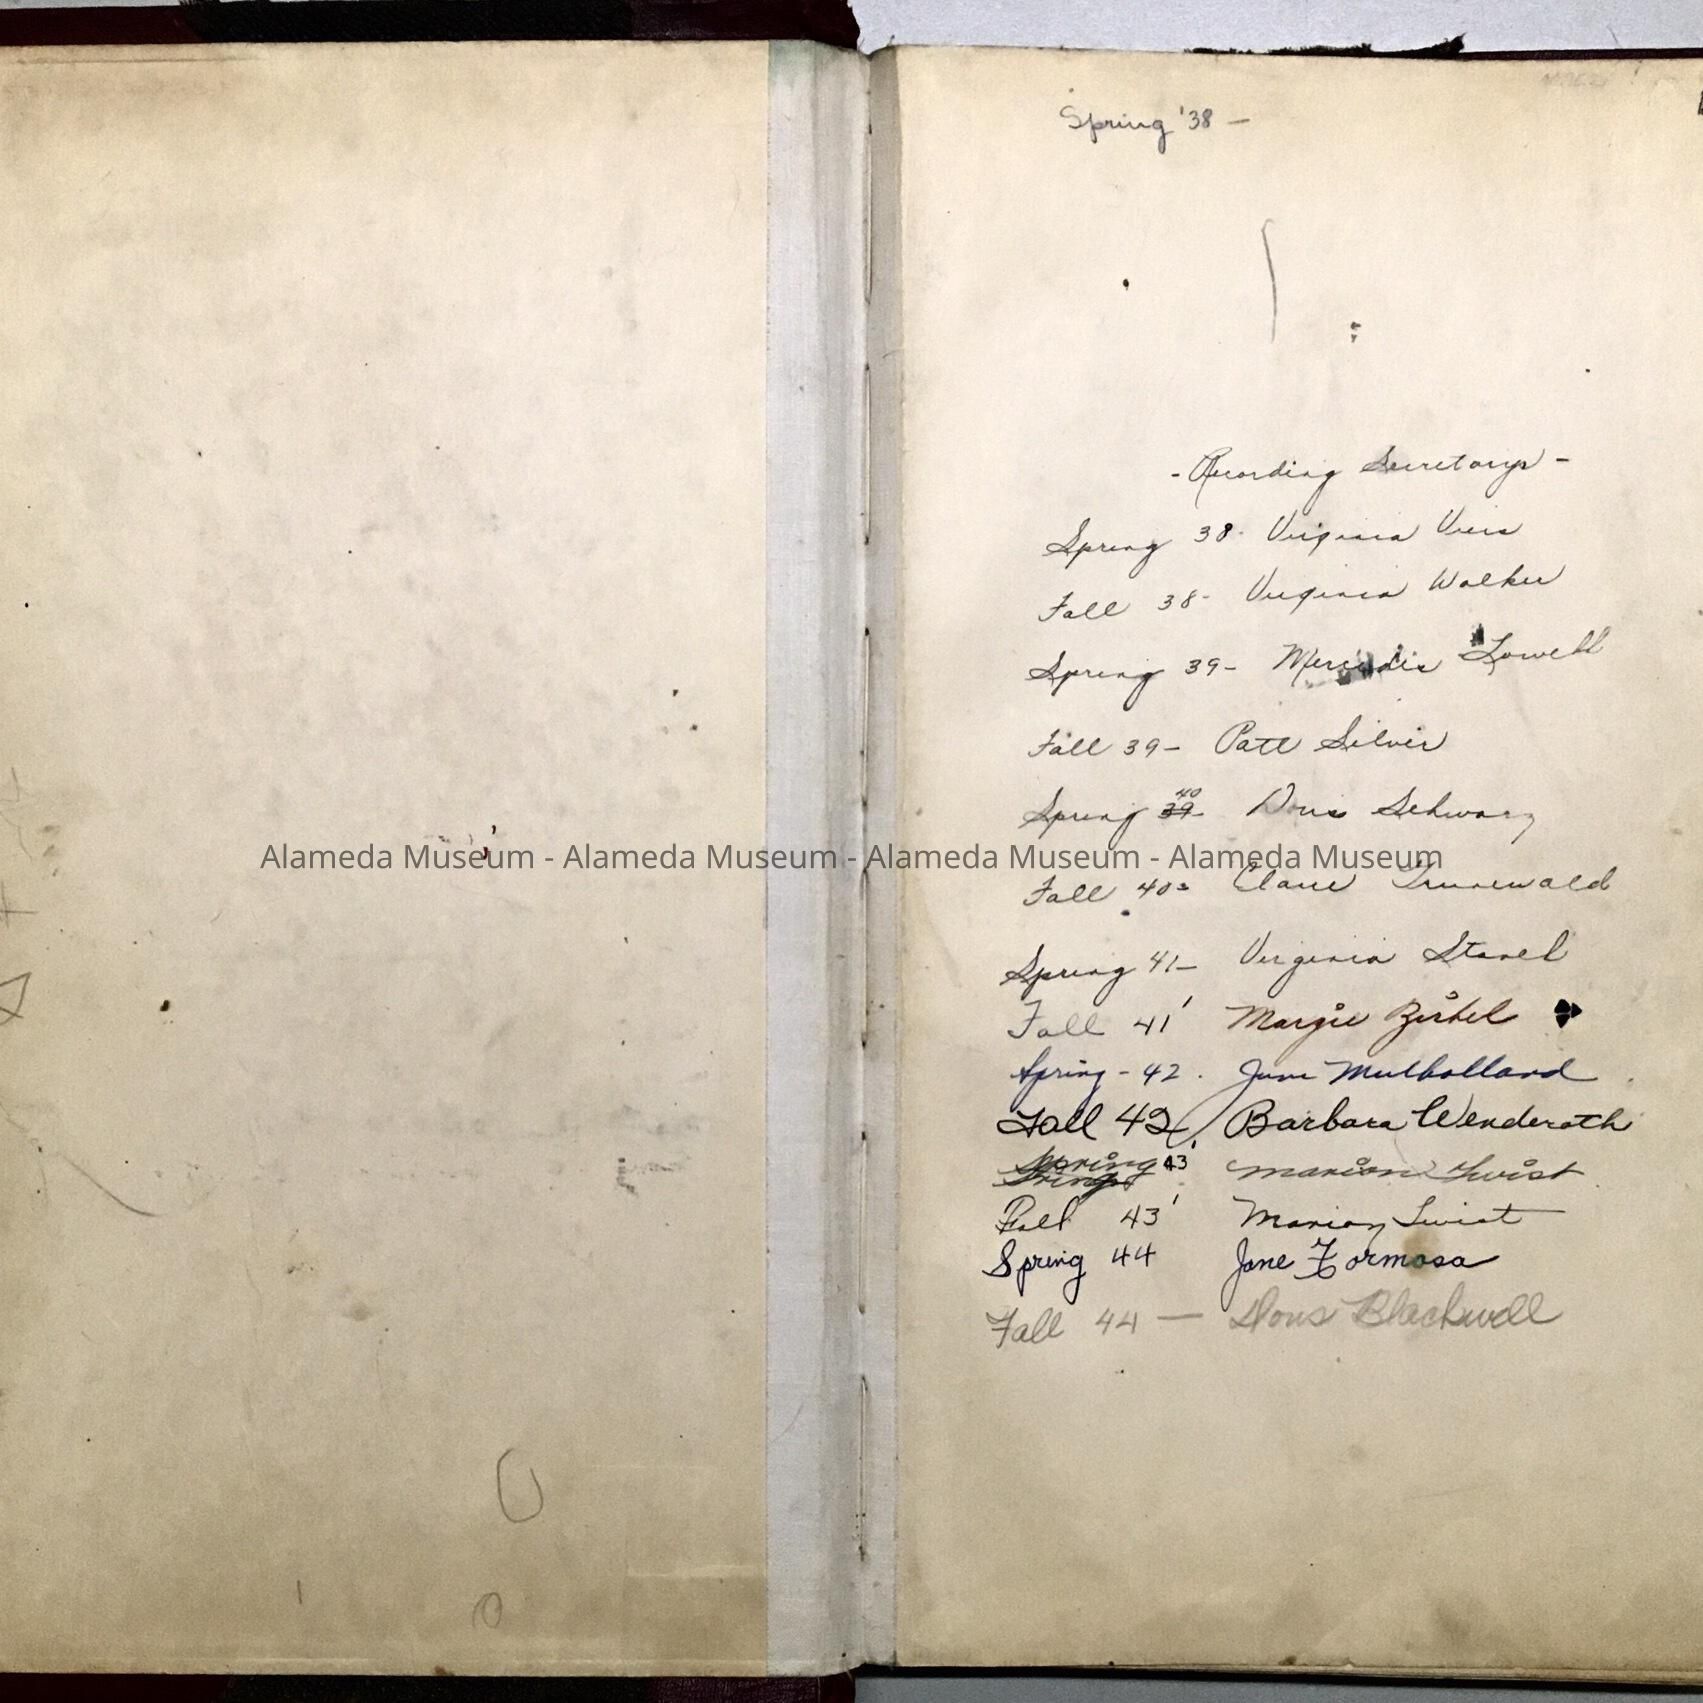 Spring '38 -
- Recording Secretarys -
Spring 38 - Virginia
Fall 38 - Virginia Walker
Spring 39 - Lowell
Fall 39 - Silver
Spring 39 40 Doris Schwarz
Alameda Museum - Alameda Museum - Alameda Museum - Alameda Museum
Fall 40 - Grunewald
Spring 41 - Virginia
Fall 41' Margie
Spring - 42. June Mulholland
Fall 42 Barbara Wenderoth
Spring 43' Marion Twist
Fall 43' Marion Twist
Spring 44 Jane Formosa
Fall 44 — Doris Blackwell